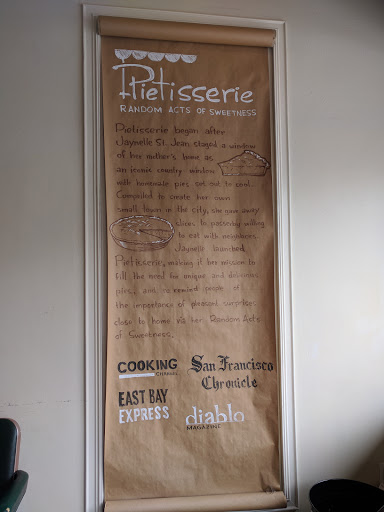 Pietisserie
RANDOM ACTS OF SWEETNESS
Pietisserie began after
Jaynelle St. Jean staged a window
of her mother's home as
an iconic country window
with homemade pies set out to cool.
Compelled to create her own
small town in the city, she gave away
slices to passersby willing
to eat with neighbors.
Jaynelle launched
Pietisserie, making it her mission to
fill the need for unique and delicious
pies, and to remind people of
the importance of pleasant surprises
close to home via her Random Acts
of Sweetness.
COOKING
CHANNEL
San Francisco
Chronicle
EAST BAY
EXPRESS
diablo
MAGAZINE